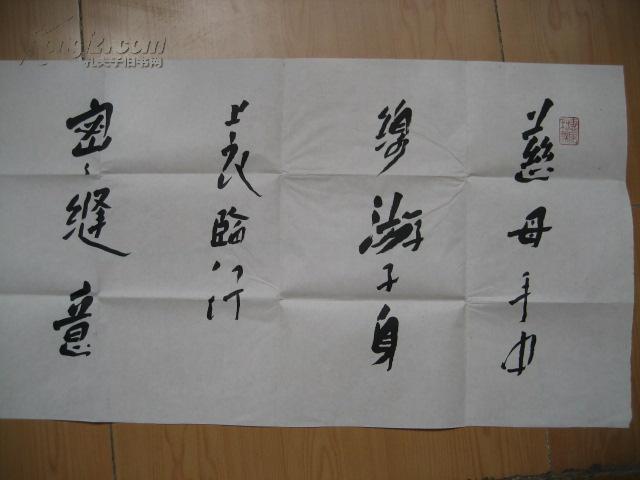 慈母手中
線游子身
上衣臨行
密々縫意
Kongfz.com
孔夫子旧书网